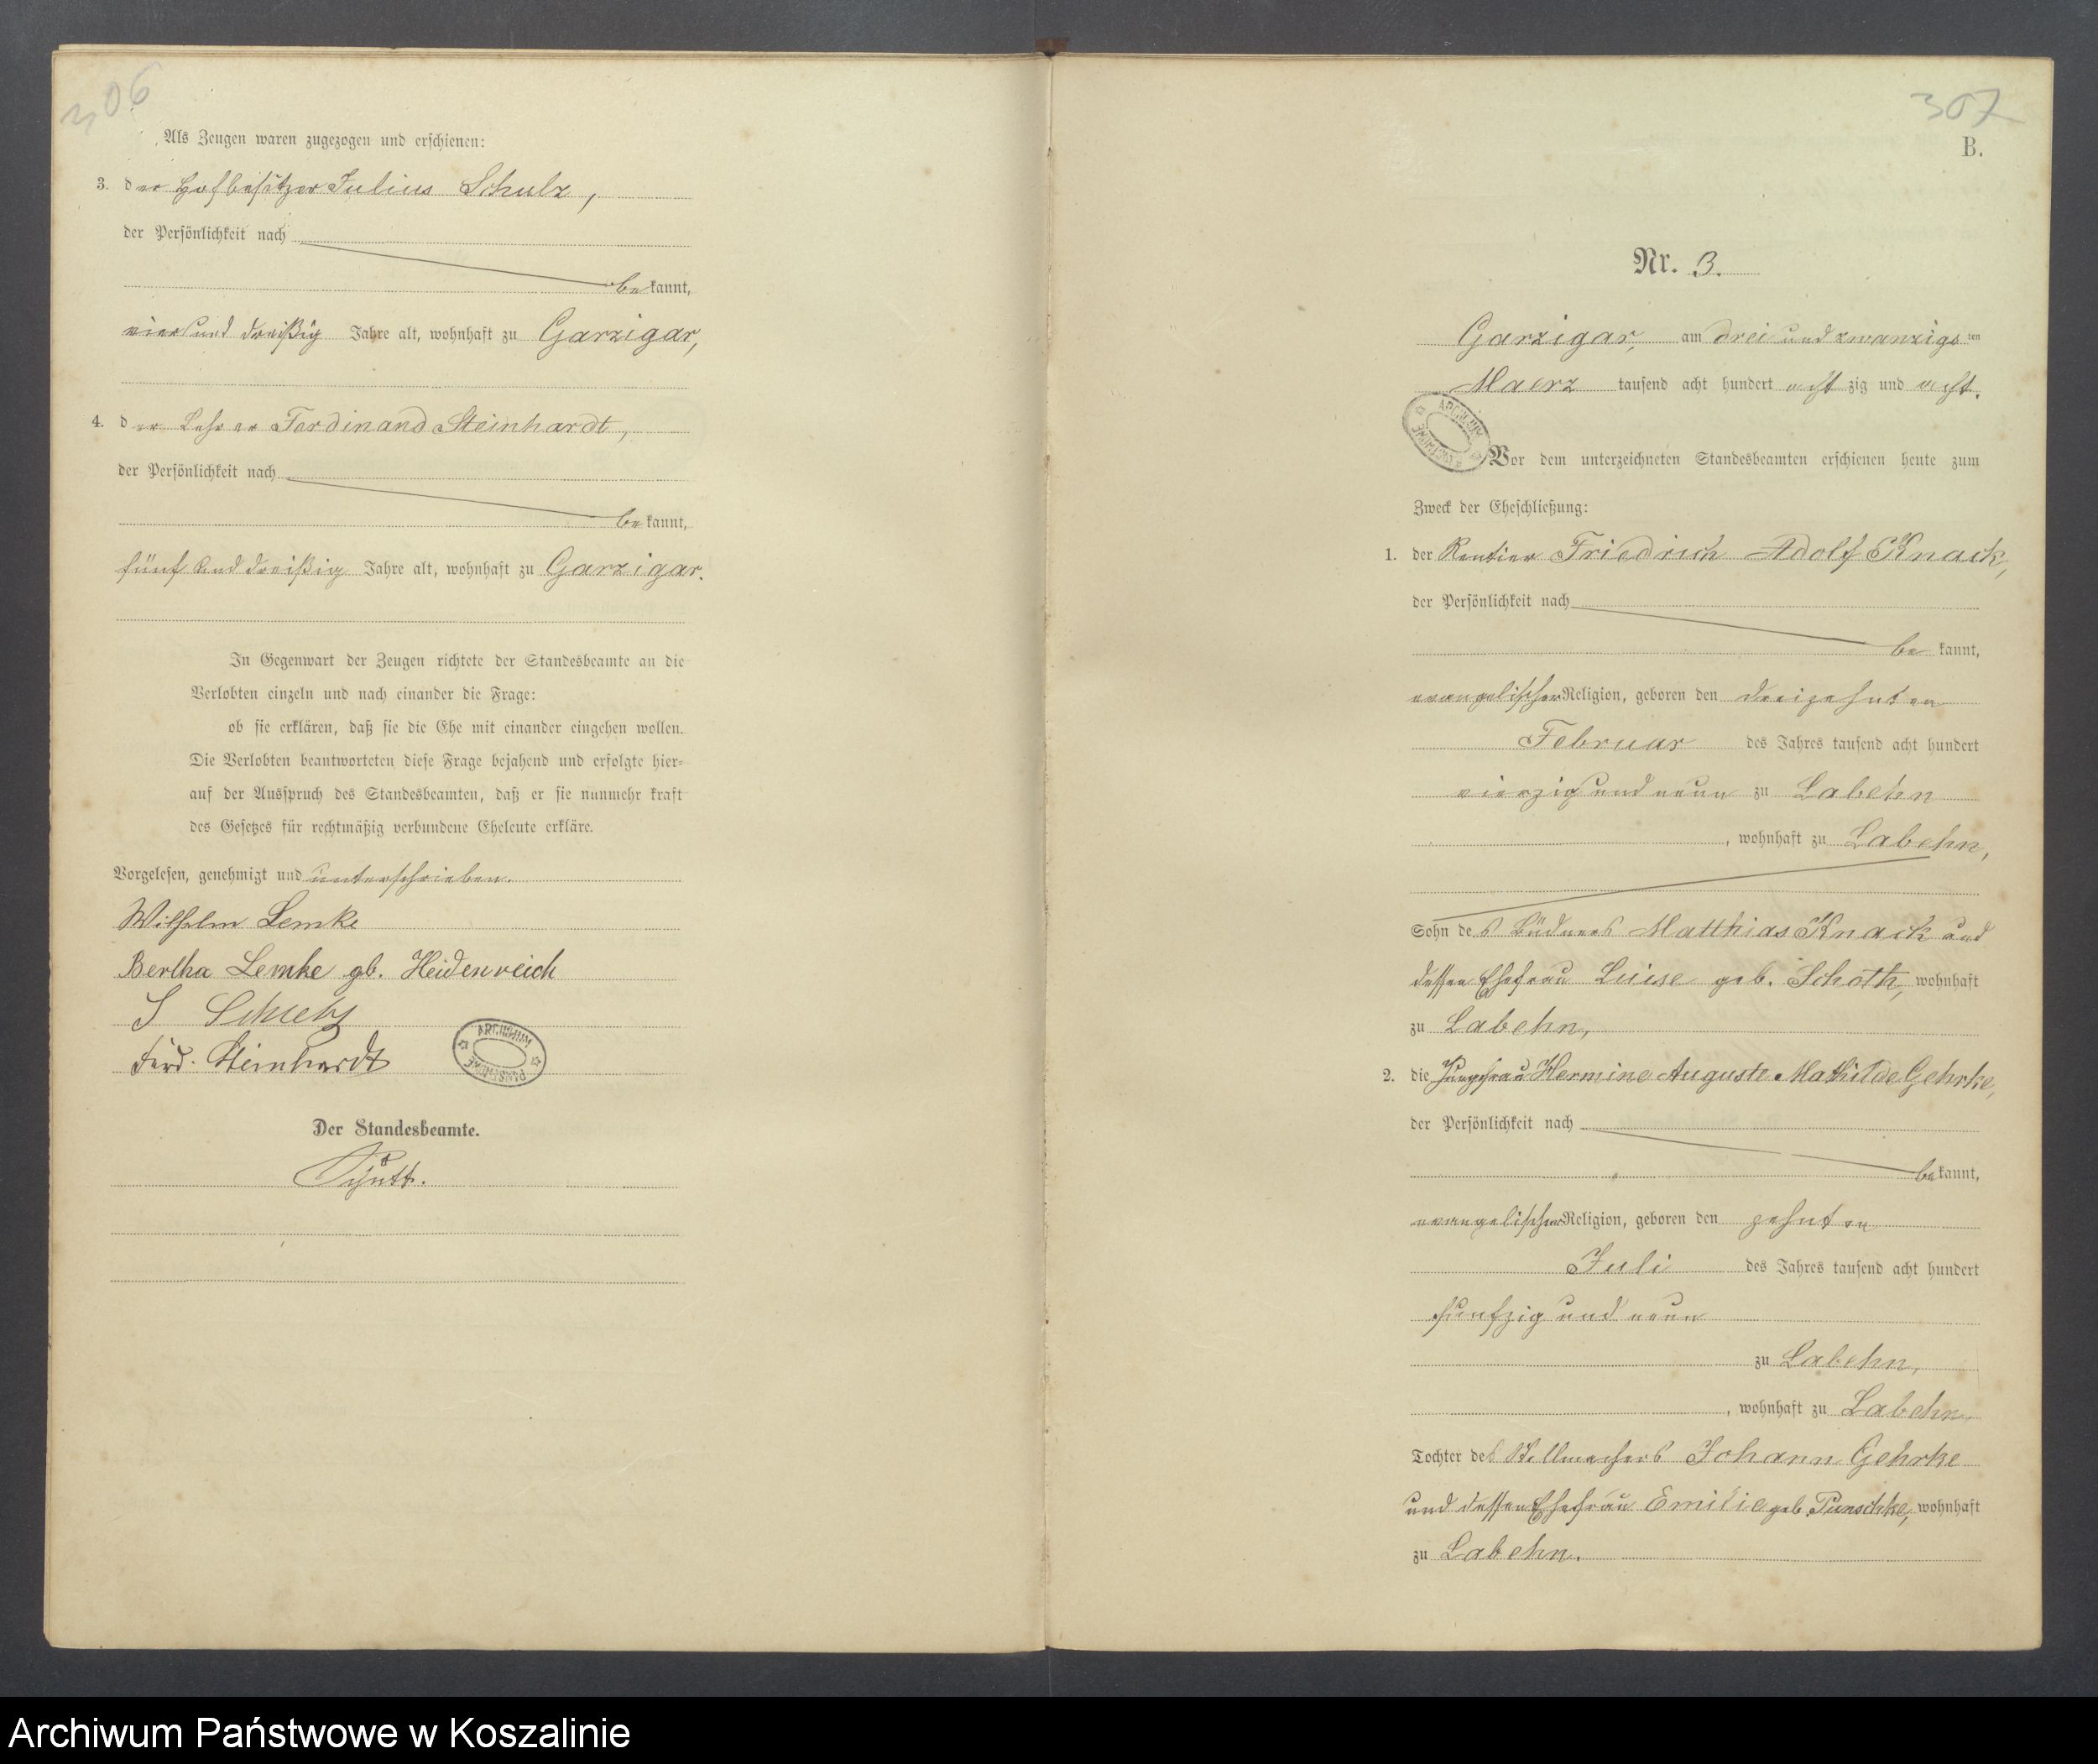 306
Als Zeugen waren zugezogen und erschienen:
3. der Hofbesitzer Julius Schulz,
der Persönlichkeit nach
bekannt,
vier und dreißig Jahre alt, wohnhaft zu Garzigar,
4. der Lehrer Ferdinand Steinhardt,
der Persönlichkeit nach
bekannt,
fünf und dreißig Jahre alt, wohnhaft zu Garzigar.
In Gegenwart der Zeugen richtete der Standesbeamte an die
Verlobten einzeln und nach einander die Frage:
ob sie erklären, daß sie die Ehe mit einander eingehen wollen.
Die Verlobten beantworteten diese Frage bejahend und erfolgte hier-
auf der Ausspruch des Standesbeamten, daß er sie nunmehr kraft
des Gesetzes für rechtmäßig verbundene Eheleute erkläre.
Vorgelesen, genehmigt und unterschrieben.
Wilhelm Lemke
Bertha Lemke gb. Heidenreich
J Schulz
Ferd. Steinhardt
ARCHIWUM PAŃSTWOWE
Der Standesbeamte.
307
B.
Nr. 3.
Garzigar, am drei und zwanzigsten
Maerz tausend acht hundert achtzig und acht.
ARCHIWUM PAŃSTWOWE
Vor dem unterzeichneten Standesbeamten erschienen heute zum
Zweck der Eheschließung:
1. der Rentier Friedrich Adolf Knack,
der Persönlichkeit nach
bekannt,
evangelischer Religion, geboren den dreizehnten
Februar des Jahres tausend acht hundert
vierzig und neun zu Labehn
, wohnhaft zu Labehn,
Sohn des Büdners Matthias Knack und
dessen Ehefrau Luise geb. Schoth, wohnhaft
zu Labehn,
2. die Jungfrau Hermine Auguste Mathilde Gehrke,
der Persönlichkeit nach
bekannt,
evangelischer Religion, geboren den zehnten
Juli des Jahres tausend acht hundert
fünfzig und neun
zu Labehn,
, wohnhaft zu Labehn,
Tochter des Stellmachers Johann Gehrke
und dessen Ehefrau Emilie geb. Punschke, wohnhaft
zu Labehn.
Archiwum Państwowe w Koszalinie